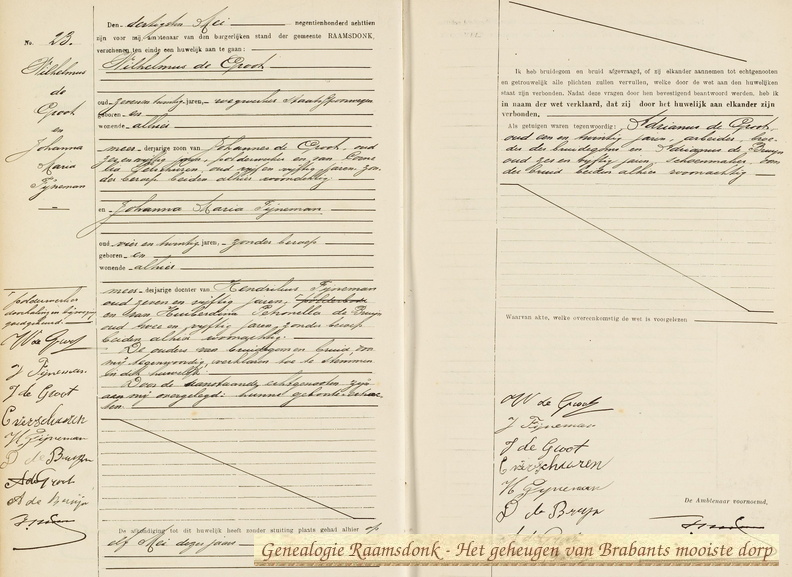 No. 23.
Wilhelmus
de
Groot
en
Johanna
Maria
Fijneman
Den dertigsten Mei negentienhonderd achttien
zijn voor mij ambtenaar van den burgerlijken stand der gemeente RAAMSDONK,
verschenen ten einde een huwelijk aan te gaan:
Wilhelmus de Groot
oud zeven en twintig jaren, wegwerker Staatsspoorwegen
geboren en
wonende alhier
meer- derjarige zoon van Johannes de Groot, oud
jaren, polderwerker en van Corne
lia oud vijf en vijftig jaren, zon
der beroep beiden alhier woonachtig
en Johanna Maria Fijneman
oud vier en twintig jaren, zonder beroep
geboren en
wonende alhier
meer- derjarige dochter van Hendrikus Fijneman
oud zeven en vijftig jaren,
en van Petronella de Bruijn
oud twee en vijftig jaren, zonder beroep
beiden alhier woonachtig.
De ouders van bruidegom en bruid, voor
mij tegenwoordig, verklaren toe te stemmen
in dit huwelijk.
Door de aanstaande echtgenooten zijn
aan mij overgelegd: hunne geboorte extrac
ten.
De afkondiging tot dit huwelijk heeft zonder stuiting plaats gehad alhier op
elf Mei dezes jaars
goedgekeurd.
W de Groot
J Fijneman
J de Groot
C Verschuuren
H Fijneman
P de Bruijn
A de Groot
A de Bruijn
Ik heb bruidegom en bruid afgevraagd, of zij elkander aannemen tot echtgenooten
en getrouwelijk alle plichten zullen vervullen, welke door de wet aan den huwelijken
staat zijn verbonden. Nadat deze vragen door hen bevestigend beantwoord werden, heb ik
in naam der wet verklaard, dat zij door het huwelijk aan elkander zijn
verbonden,
Als getuigen waren tegenwoordig: Adrianus de Groot,
oud een en twintig jaren, arbeider, broe
der des bruidegoms en Adrianus de Bruijn
oud zes en vijftig jaren, schoenmaker, oom
der bruid beiden alhier woonachtig
Waarvan akte, welke overeenkomstig de wet is voorgelezen
W de Groot
J Fijneman
J de Groot
C Verschuuren
H Fijneman
P de Bruijn
De Ambtenaar voornoemd,
Genealogie Raamsdonk - Het geheugen van Brabants mooiste dorp